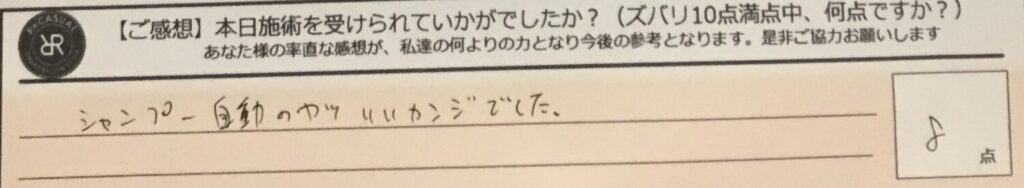 【ご感想】本日施術を受けられていかがでしたか？（ズバリ10点満点中、何点ですか？）
あなた様の率直な感想が、私達の何よりの力となり今後の参考となります。是非ご協力お願いします
シャンプー自動のヤツいいカンジでした。
8
点